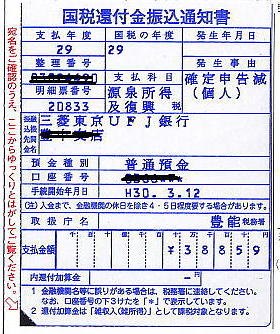 国税還付金振込通知書
支払年度 国税の年度 発生年月日
29 29
整理番号 支払科目 発生事由
源泉所得 確定申告減
明細票番号 及復興税 (個人)
20833
振込先金融機関名 三菱東京UFJ銀行
預金種別 普通預金
口座番号
手続開始年月日 H30. 3.12
(注)入金まで、金融機関の休日を除き4・5日程度要する場合があります。
取扱庁名 豊能税務署
支払金額 ¥38859
内還付加算金 −円
1 金融機関名等に誤りがある場合は、税務署に連絡してください。
なお、口座番号の下3けたを「*」で表示しています。
2 還付加算金は「雑収入(雑所得)」として課税対象となります。
宛名をご確認のうえ、ここからゆっくりとはがしてご覧ください。